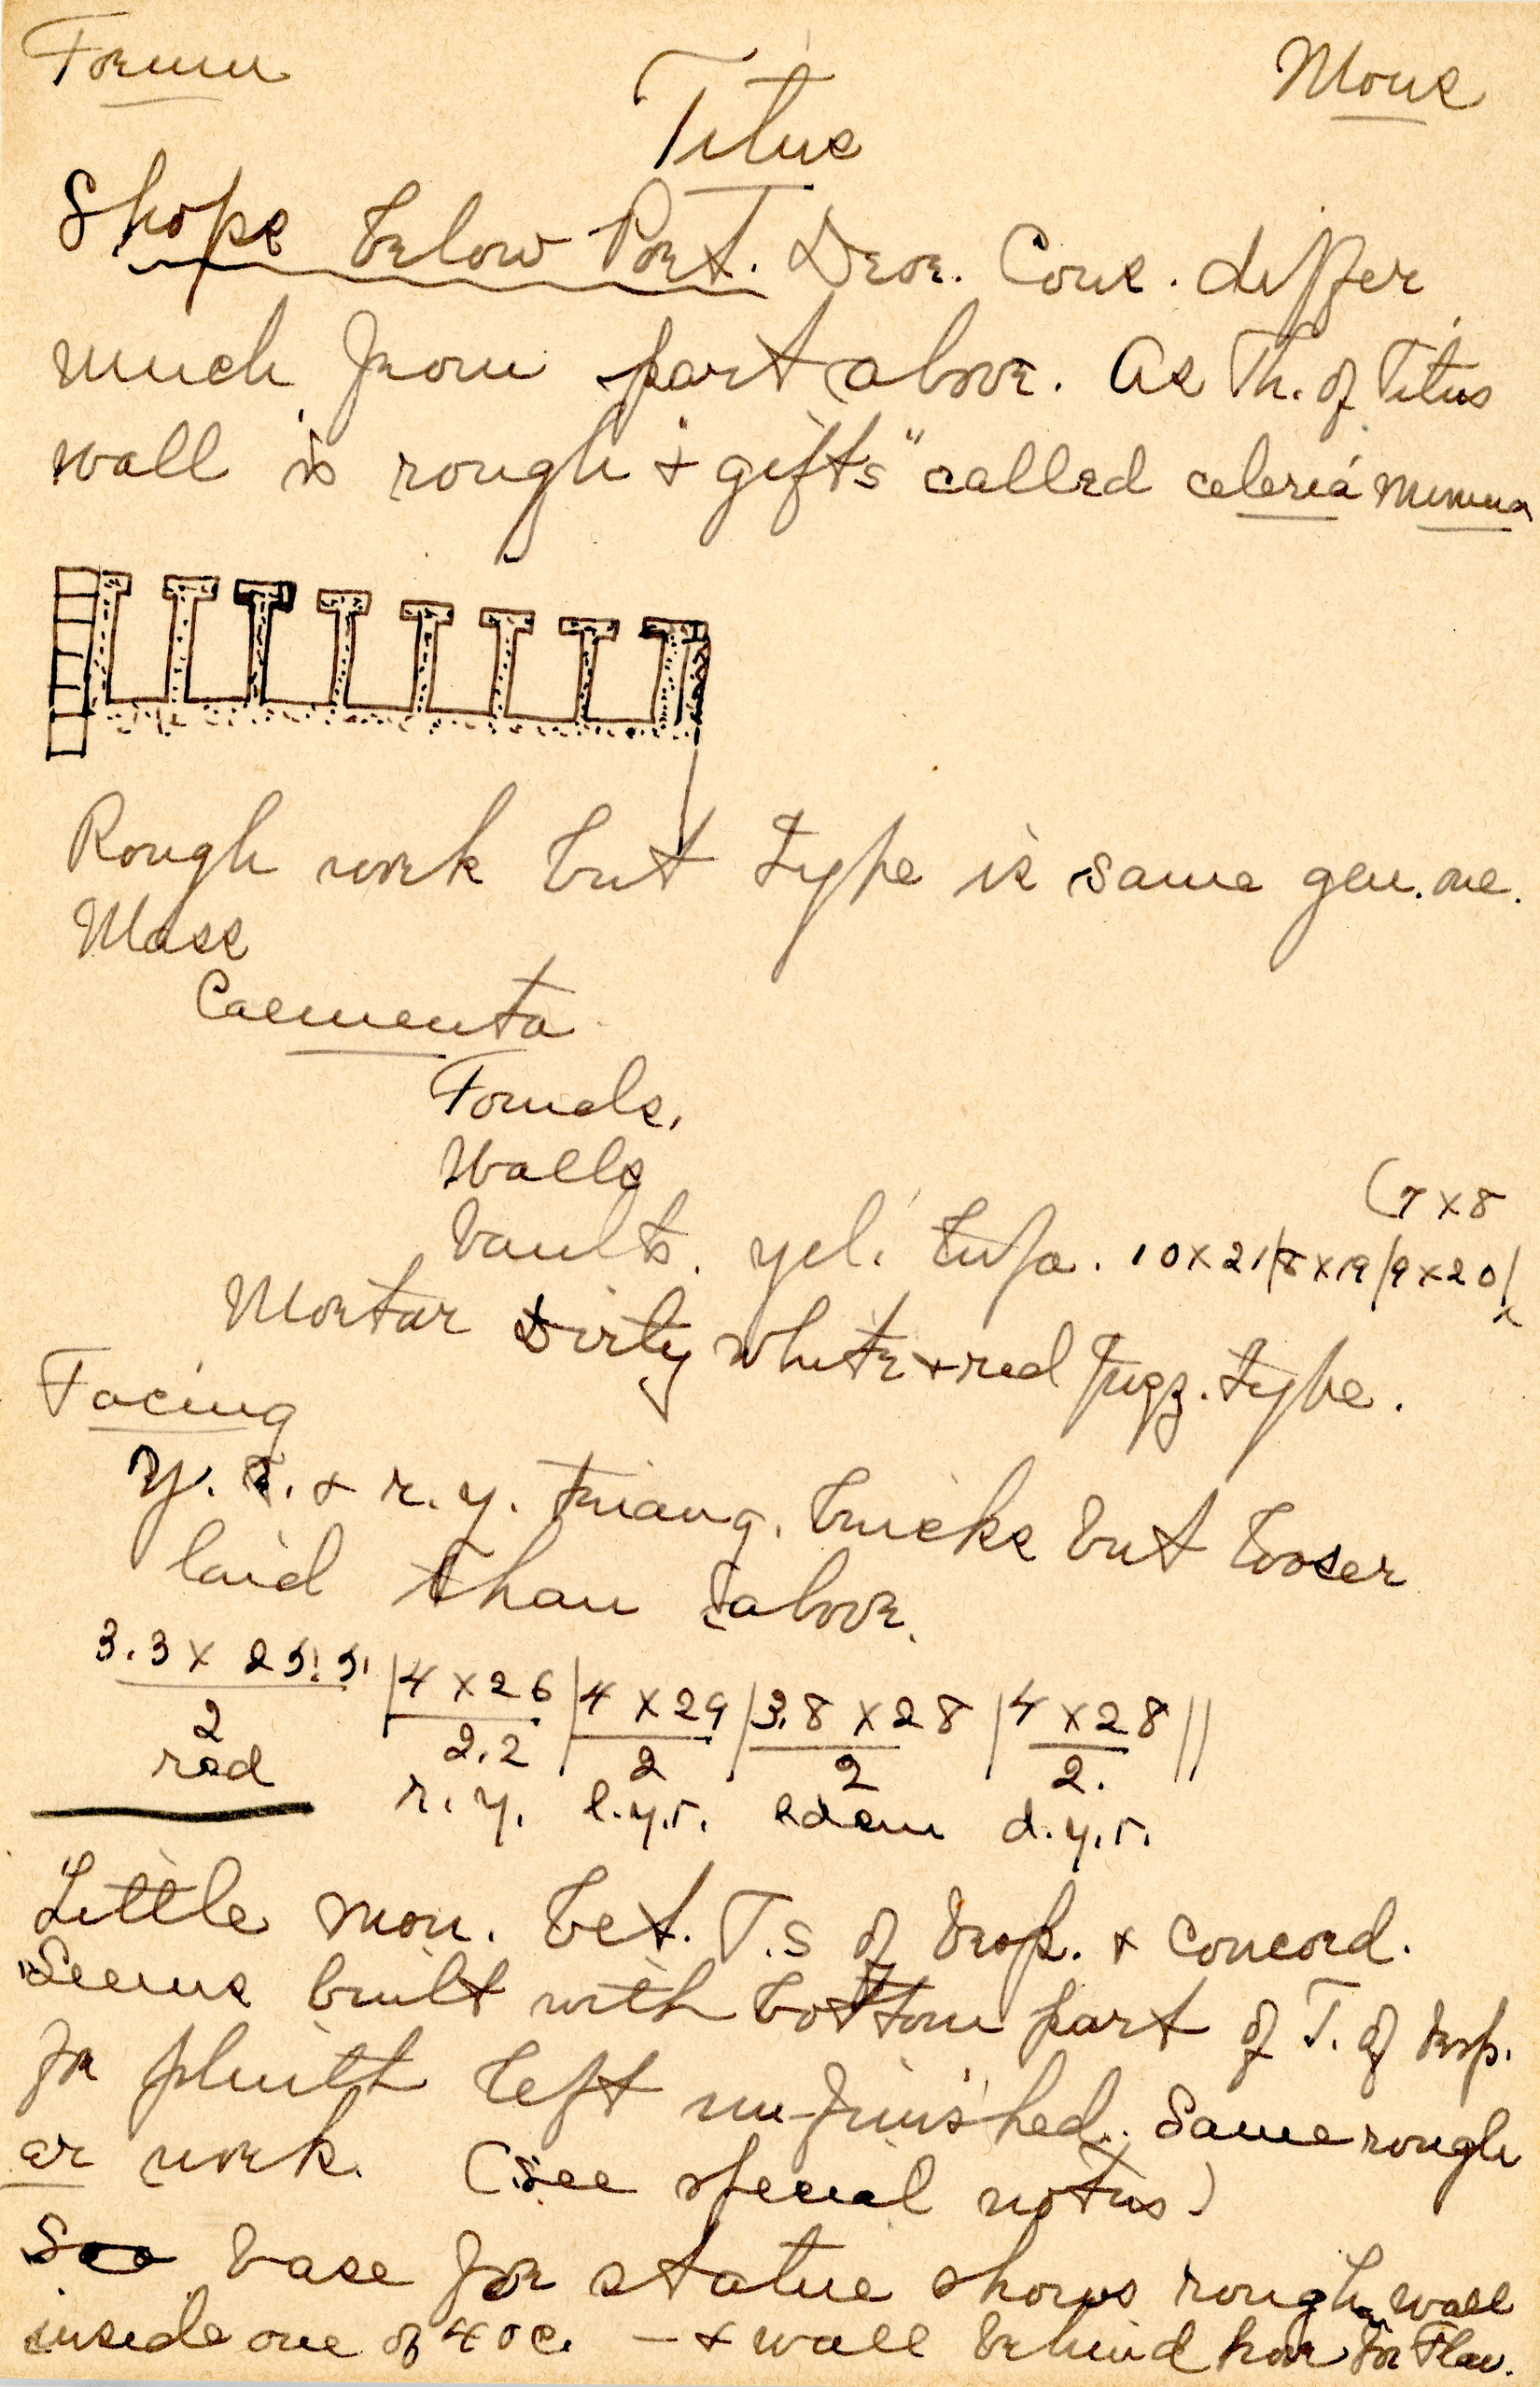 Forum
Mons
Titus
Shops below Port. Deor. Cons. differ
much from part above. As Th. of Titus
wall is rough & "gifts" called celeria minima
Rough work but type is same gen. one.
Mass
Caementa
Founds.
Walls
(7 x 8
Vaults. yel. tufa. 10 x 21/8 x 19/9 x 20/
Mortar Dirty white & red pugz. type.
Facing
y. r. & r. y. triang. bricks but looser
laid than above.
3.3 x 25.5 | 4 x 26 | 4 x 29 | 3.8 x 28 | 4 x 28 ||
2 2.2 2 2 2.
red r. y. l.y.r. idem d.y.r.
Little mon. bet. T.s of Vesp. & Concord.
Seems built with bottom part of T. of Vesp.
for plinth left un-finished. Same rough
ar work. (see special notes)
See base for statue shows rough wall
inside one of 4 o C. — & wall behind for Flav.